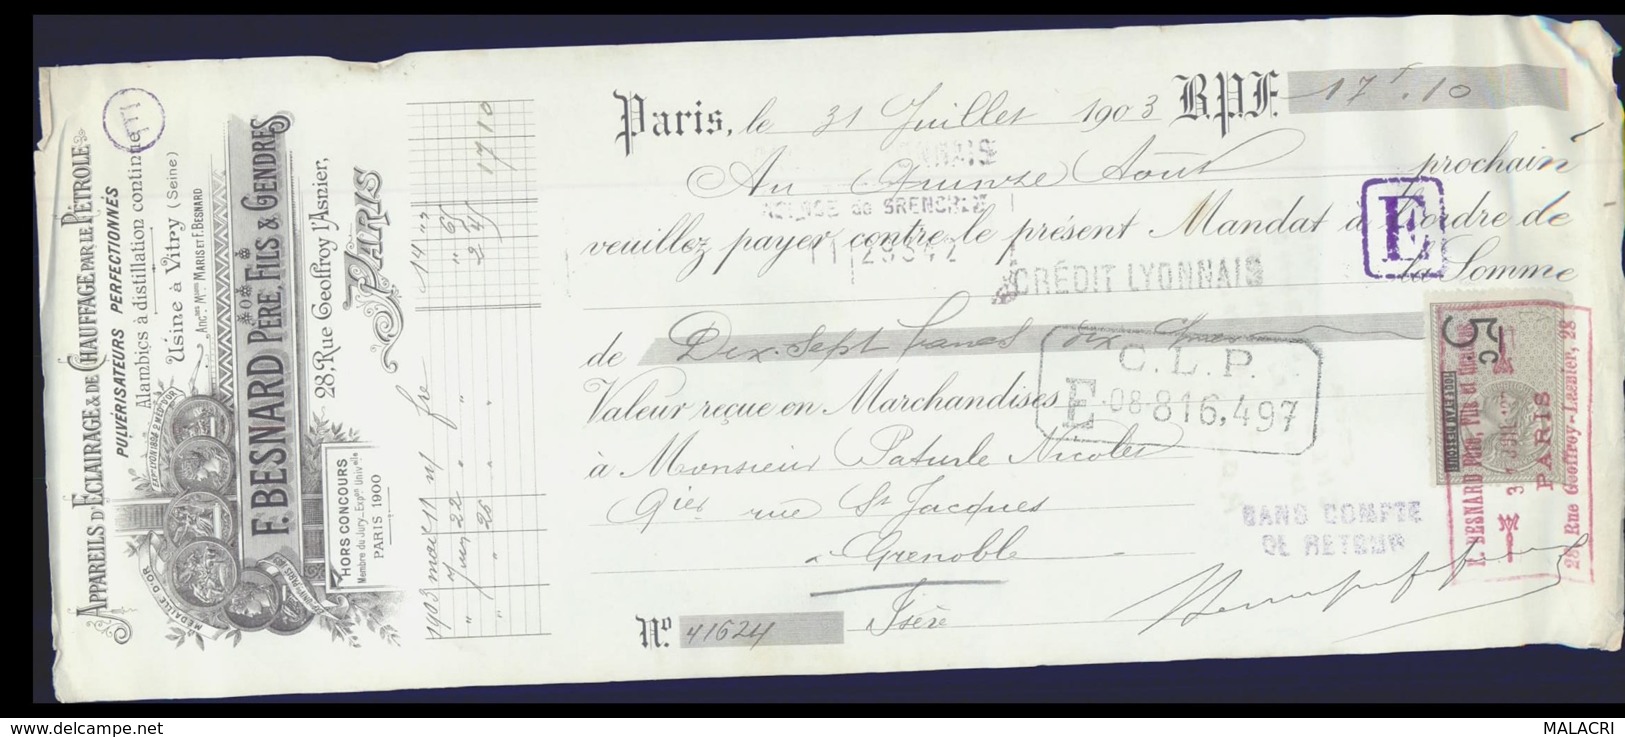 APPAREILS D'ÉCLAIRAGE & DE CHAUFFAGE PAR LE PÉTROLE
PULVÉRISATEURS PERFECTIONNÉS
Alambics à distillation continue
Usine à Vitry (Seine)
ANC.NES M.SONS MARIS ET F. BESNARD
F. BESNARD PÈRE, FILS & GENDRES
28, Rue Geoffroy l'Asnier,
PARIS
EXP.ON LYON 1894 2 MED. D'OR
MÉDAILLE D'OR
HORS CONCOURS
Membre du Jury_Exp.on Univ.elle
PARIS 1900
1903 mai 11 m/ fre 14 "
" Juin 22 " " " 65
" " 26 " " 2 45
17 10
Paris, le 31 Juillet 1903 B.P.F. 17f.10
Au Quinze Août prochain
veuillez payer contre le présent Mandat à l'ordre de
la Somme
de Dix-sept francs dix
Valeur reçue en Marchandises
à Monsieur Paturle Nicolet
Qier rue St Jacques
Grenoble
Isère
No. 41624
E
CRÉDIT LYONNAIS
C.L.P.
E 08-816,497
SANS COMPTE
DE RETOUR
5c
F. BESNARD Père, Fils et Gendres
PARIS
28, Rue Geoffroy-Lasnier, 28
MALACRI